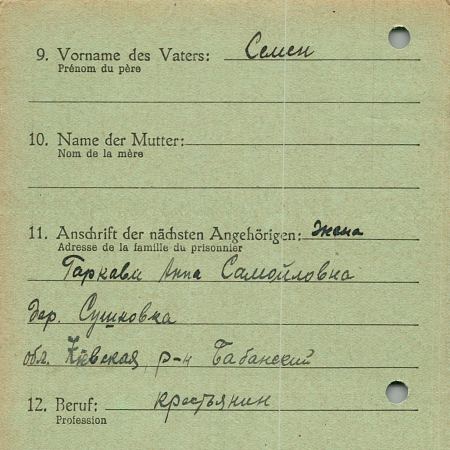 9. Vorname des Vaters: Семен
Prénom du père
10. Name der Mutter:
Nom de la mère
11. Anschrift der nächsten Angehörigen: жена
Adresse de la famille du prisonnier
Гаркави Анна Самойловна
дер. Сушковка
обл. Киевская, р-н Бабанский
12. Beruf: крестьянин
Profession